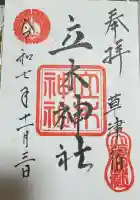 奉拝
草津
立木神社
立木神社
令和七年十一月三日